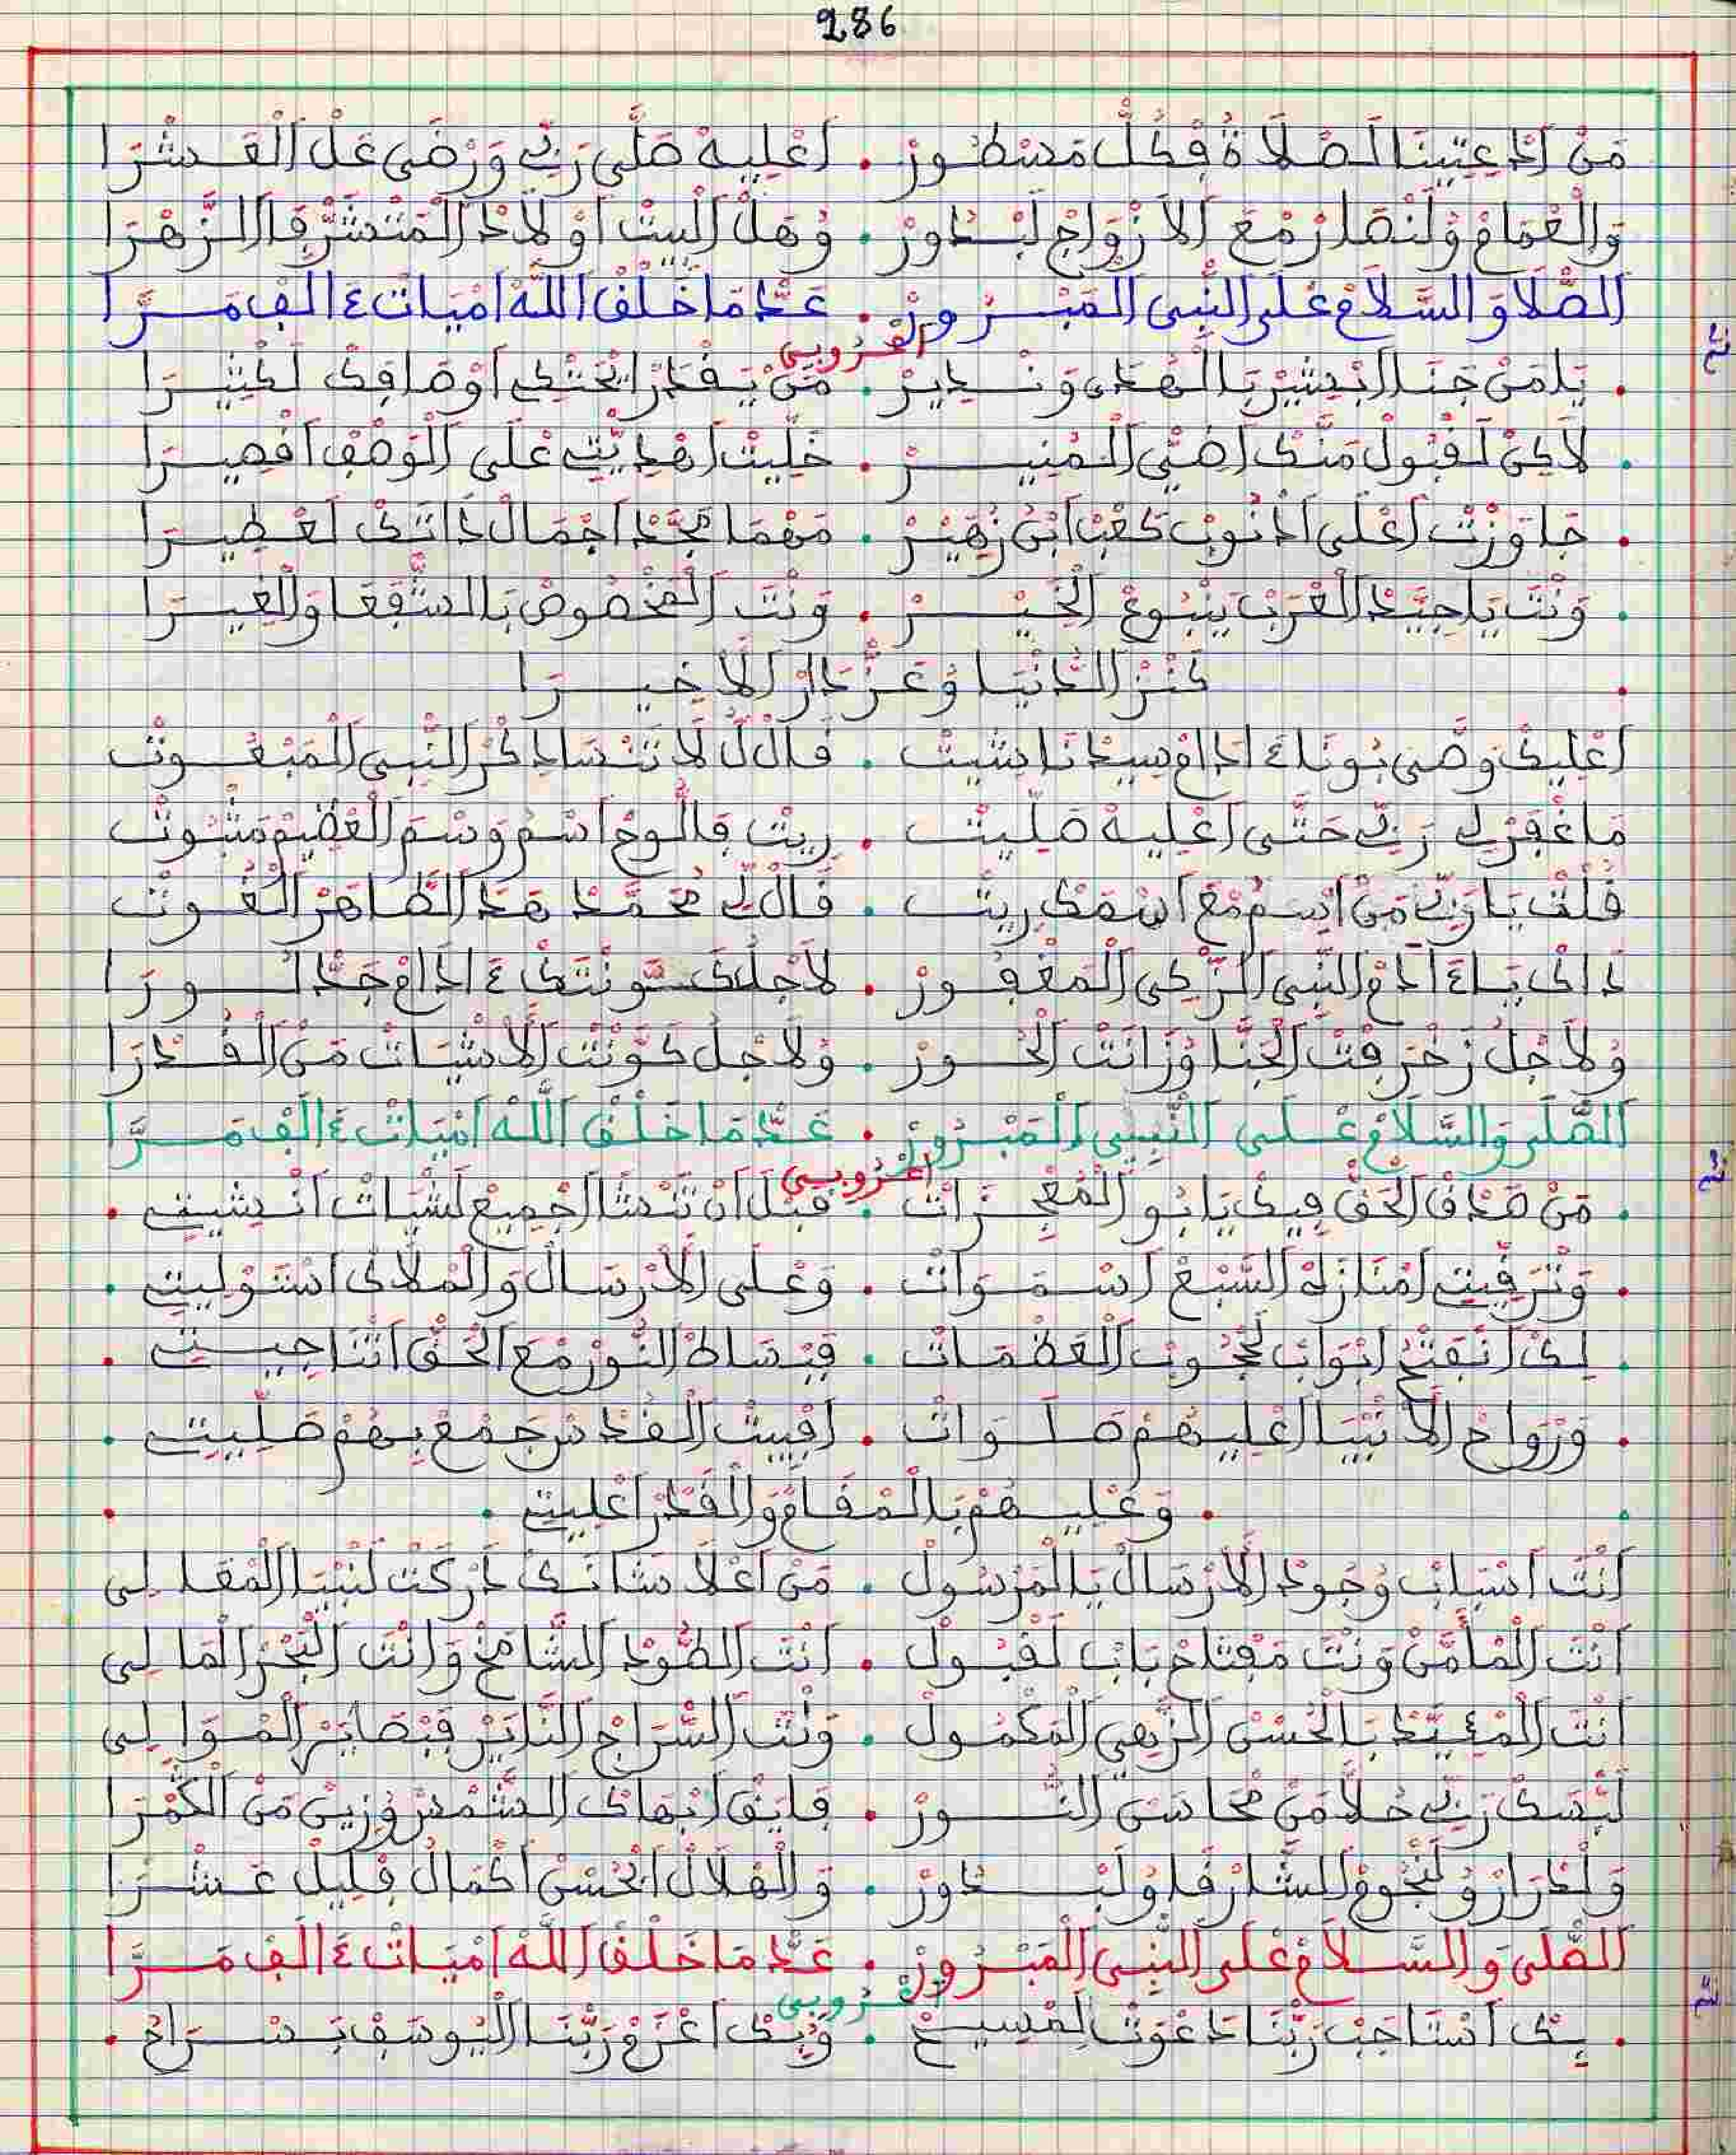 286
مَنْ اَدْعِتِينَا الصْلَاةُ فِكُلّْ مَسْطُورْ . اَعْلِيهْ صَلَّى رَبِّي وَرْضَى عَلْ الْعَشْرَا
وَالْعْمَامْ وُلَنْصَارْ مْعَ اَلَازْوَاجْ لَبْدُورْ . وُهَلْ اَلْبِيتْ اَوْلَادْ الْمَتْشَرّْفَا الزَّهْرَا
الصّْلَا وَالسَّلَامْ عْلَى النّْبِي الْمَبْرُورْ . عَدّْ مَا خَلْقْ اللَّهْ اَمْيَاتْ ءَالَفْ مَرَّا
اعْرُوبِي
يَا مَنْ جَانَا اَبْشِيرْ بَالْهْدَى وَنْدِيرْ . مَنْ يَقْدَرْ يَحْتْكِي اَوْصَافِكْ لَكْثِيرَا
لَاكِنْ لَقْبُولْ مَنَّكْ اَضْيِ الْمُنِيرْ . خَلِّيتْ اَهْدِيّْتِي عْلَى الْوَصْفْ اَقْصِيرَا
جَاوَزْتْ اَعْلَى اَدْنُوبْ كَعْبْ اَبْنْ زُهَيْرْ . مَهْمَا مَجَّدْ اَجْمَالْ دَاتَكْ لَعْطِيرَا
وَنْتَ يَا سِيَّدْ الْعْرَبْ يَنْبُوعْ الْخَيْرْ . وَنْتَ الْمَخْصُوصْ بَالشَّفْعَا وَالْغِيرَا
كَنْزْ الدَّنْيَا وُعَزّْ دَارْ اَلَاخِيرَا
اَعْلِيكْ وَصَّى بُونَا ءَادَامْ سِيدْنَا شِيتْ . قَالْ لُ لَا تَنْسَا دِكْرْ النّْبِي الْمَبْعُوتْ
مَا غْفَرْ لِي رَبِّي حَتَّى اَعْلِيهْ صَلِّيتْ . رِيتْ فَاللُّوحْ اَسْمُ وَسْمَ الْعْظِيمْ مَثْبُوتْ
قُلْتْ يَا رَبِّي مَنْ اِسْمُ مْعَ اَسْمَكْ رِيتْ . قَالْ لِي مُحَمَّدْ هَدَ الطَّاهَرْ الْغُوتْ
دَاكْ يَاءَادَامْ النّْبِي الزّْكِي الْمَغْفُورْ . لَاجْلُ كَوّْنْتَكْ ءَادَامْ جَدّْ الْورَا
وُلَاجْلُ زَخْرَفْتْ الْجَنَّا وُزَانَتْ الْحُورْ . وُلَاجْلُ كَوّْنْتْ الَاشْيَاتْ مَنْ الْقُدْرَا
الصّْلَى وَالسَّلَامْ عْلَى النّْبِي الْمَبْرُورْ . عَدّْ مَا خَلْقْ اللَّهْ اَمْيَاتْ ءَالَفْ مَرَّا
اعْرُوبِي
مَنْ صَدْقْ الْحَقّْ فِيكْ يَا بُو الْمُعْجِزَاتْ . قَبْلْ اَنْ تَنْشَا اَجْمِيعْ لَشْيَاتْ اَنْشِيتِ
وَتْرَقِّيتِ اَمْنَازَهْ السَّبْعْ اَسْمَوَاتْ . وَعْلَى الَارْسَالْ وَالْمْلَاكْ اَسْتَوْلِيتِ
لِكْ اَنْفَتْحُ اَبْوَابْ لَحْجُوبْ الْعَظْمَاتْ . فَبْسَاطْ النُّورْ مْعَ الْحَقّْ اَتْنَاجِيتِ
وَرْوَاحْ الَانْبِيَا اَعْلِيهُمْ صَلَوَاتْ . اَفْبِيتْ الْقُدْسْ جَمْعْ بِهُمْ صَلِّيتِ
وَعْلِيهُمْ بَالْمْقَامْ وَالْقَدْرْ اَعْلِيتِ
اَنْتَ اَسْبَابْ وُجُودْ الَارْسَالْ يَالْمَرْسُولْ . مَنْ اَعْلَا شَانَكْ دَرْكَتْ لَنْبِيَا الْمْعَالِي
اَنْتَ الْمَامَّنْ وَنْتَ مَفْتَاحْ بَابْ لَقْبُولْ . اَنْتَ الطُّودْ الشَّامَخْ وَانْتَ الْبْحَرْ الْمَالِي
اَنْتَ الْمْئَيَّدْ بَالْحُسْنْ الزّْهِي الْمَكْمُولْ . وَنْتَ السّْرَاجْ النَّايَرْ فَبْصَايَرْ الْمْوَالِي
لَبّْسَكْ رَبِّي حُلَّا مَنْ مْحَاسَنْ النُّورْ . فَايَقْ اَبْهَاكْ الشَّمْسْ وُزِينْ مَنْ الْكَمْرَا
وَلَدْرَارْ وُلَنْجُومْ الشَّارْقَا وُلَبْدُورْ . وَالْهْلَالْ الْحْسْنْ اَكْمَالْ فْلِيلْ عَشْرَا
الصّْلَى وَالسَّلَامْ عْلَى النّْبِي الْمَبْرُورْ . عَدّْ مَا خَلْقْ اللَّهْ اَمْيَاتْ ءَالَفْ مَرَّا
اعْرُوبِي
بِكْ اَسْتَاجَبْ رَبّْنَا دَعْوَتْ لَمْسِيحْ . وُبِكْ اَعْزَمْ رَبّْنَا الْيُوسَفْ بَسْرَاحْ